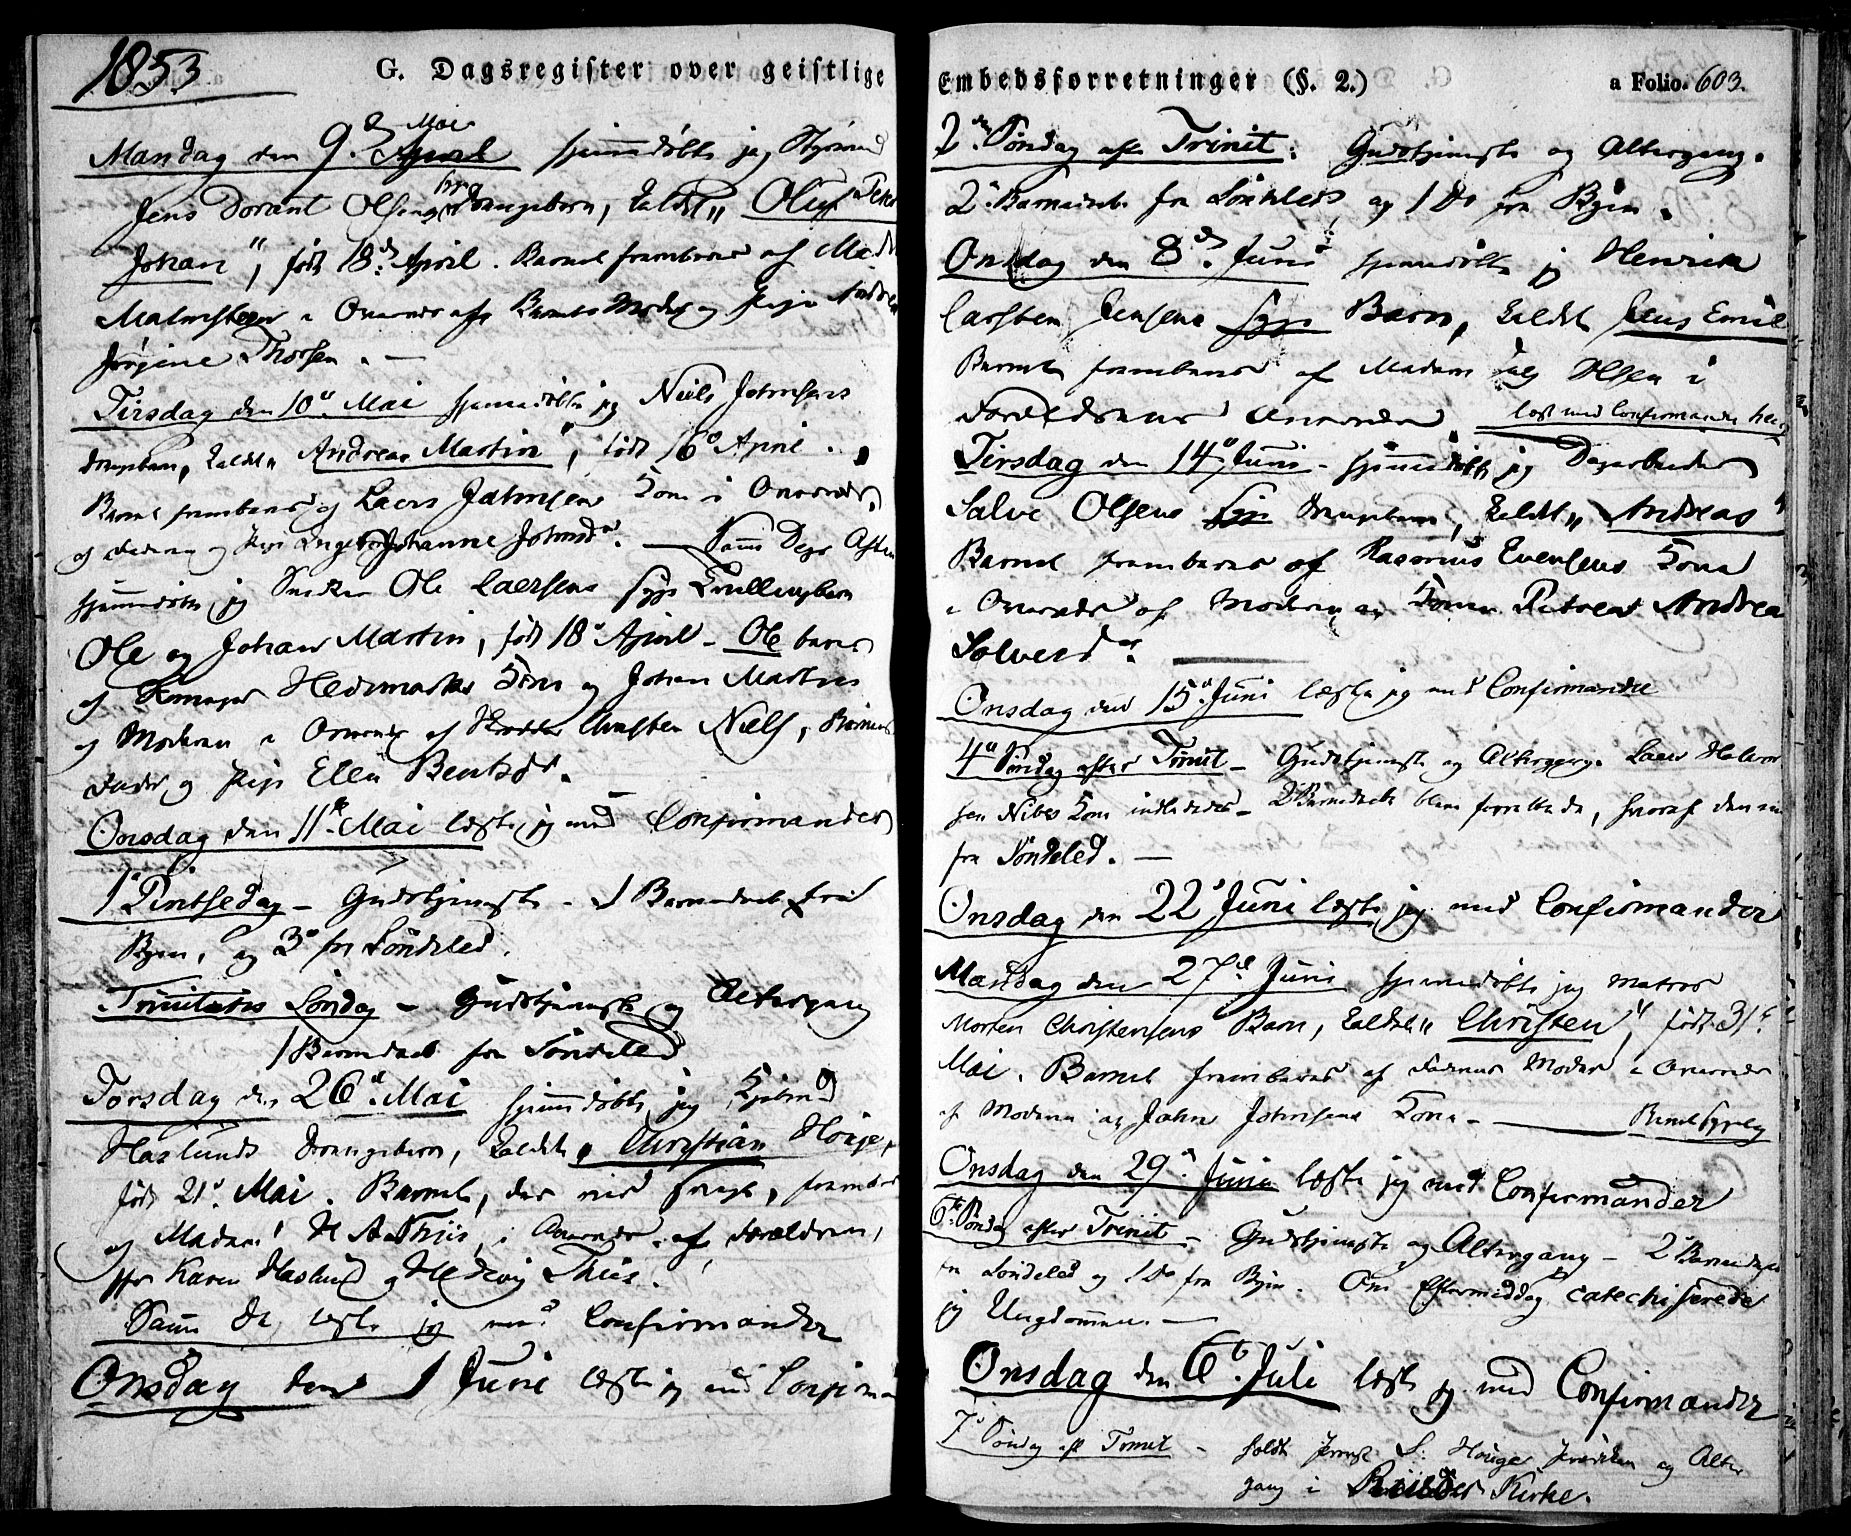 1853
G. Dagsregister over geistlige
Mandag den 9. d Mai April hjemmedøbte jeg Styrmand
Jens Dorant Olsens syge Drengebarn, kaldet "Oluf
Johan", født 18d April. Barnet frembares af Mad.
Malmsteen i Overvær af Barnets Moder og Pige Andrea
Jørgine Thorsen. —
Tirsdag den 10d Mai hjemmedøbte jeg Niels Johnsens
Drengebarn, kaldet "Andreas Martin", født 16d April.
Barnet frembares af Laers Johnsens Kone i Overvær
af Faderen og Pige Ingeborg Johanne Johnsdr. — Samme Dags Aften
hjemmedøbte jeg Snedker Ole Laersens syge Tvillingbørn
Ole og Johan Martin, født 18d April — Ole bares
af Hedemarks Kone og Johan Martin
og Moderen i Overvær af Skrædder Christen Niels, Børnenes
Fader og Pige Ellen Bentsdr.
Onsdag den 11te Mai læste jeg med Confirmander
1d Pintsedag — Gudstjeneste — 1 Barnedaab fra
Byen, og 3d fra Søndeled.
Trinitatis Søndag — Gudstjeneste og Altergang
1 Barnedaab fra Søndeled
Torsdag den 26d Mai hjemmedøbte jeg Kjøbmd
Haslunds Drengebarn, kaldet "Christian Houge,
født 21d Mai. Barnet, der var svagt, frembares
af Madam H A Thiis, i Overvær af Forældrene,
Jfr Karen Haslund og Hedevig Thiis.
Samme D læste jeg med Confirmander
Onsdag den 1 Juni læste jeg med Confirman
Embedsforretninger (§. 2.)
a Folio. 603.
2den Søndag eft Trinit: Gudstjeneste og Altergang.
2d Barnedaab fra Søndeled, og 1 Do fra Byen.
Onsdag den 8d Juni hjemmedøbte jeg Henrik
Carsten Jensens syge Barn, kaldet Jens Emil
Barnet frembares af Madam Olsen i
Forældrenes Overvær. læst med Confirmander
Tirsdag den 14d Juni — hjemmedøbte jeg Dagarbeider
Salve Olsens syge Drengebarn, kaldet "Andreas"
Barnet frembares af Rasmus Evensens Kone
i Overvær af Moderen og Petrea Andrea
Solvesdr. —
Onsdag den 15d Juni læste jeg med Confirmander
4d Søndag efter Trinit — Gudstjeneste og Altergang. Laers Halvor
sen Nibes Kone indlededes — 2d Barnedaab bleve forrettede, hvoraf den ene
fra Søndeled. —
Onsdag den 22d Juni læste jeg med Confirmander
Mandag den 27d Juni hjemmedøbte jeg Matros
Morten Christensens Barn, kaldet "Christen", født 31d
Mai. Barnet frembares af Faderens Moder i Overvær
af Moderen og John Johnsens Kone — Barnet sygelig
Onsdag den 29d Juni læste jeg med Confirmander
6te Søndag efter Trinit — Gudstjeneste og Altergang — 2d Barnedaab
fra Søndeled og 1 Do fra Byen. Om Eftermiddag catechiserede
jeg Ungdommen. —
Onsdag den 6te Juli læste jeg med Confirmander
7d Søndag eft Trinit — holdt S. Houge Prædiken og Alter
gang i Riisøer Kirke.